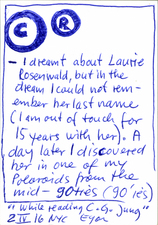 C R
- I dreamt about Laurie
Rosenwald, but in the
dream I could not rem-
ember her last name
(I am out of touch for
15 years with her). A
day later I discovered
her in one of my
Polaroids from the
mid- 90ties (90'ies)
"While reading C.G. Jung"
2 IV 16 NYC